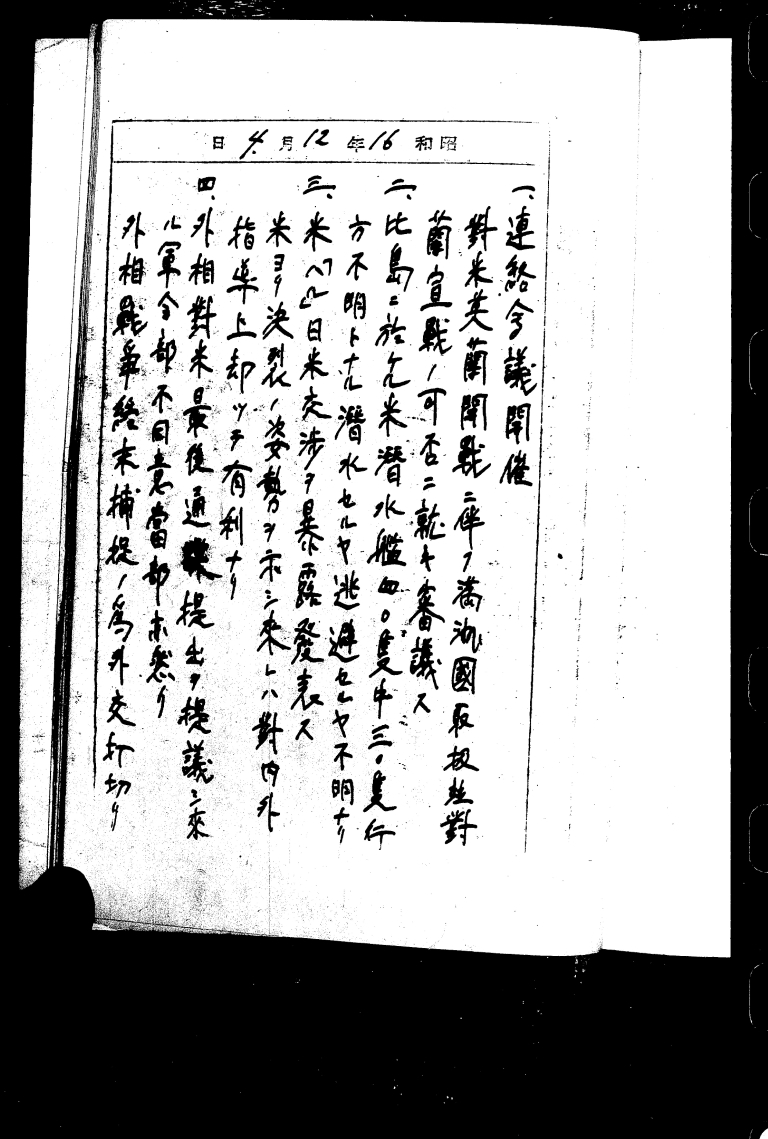 昭和16年12月4日
一、連絡会議開催
對米英蘭開戰ニ伴フ満洲國取扱並對
蘭宣戰ノ可否ニ就キ審議ス
二、比島ニ於ケル米潜水艦四〇隻中三〇隻行
方不明トナル潜水セルヤ逃避セルヤ不明ナリ
三、米ハ「 」日米交渉ヲ暴露發表ス
米ヨリ決裂ノ姿勢ヲ示シ來レハ對内外
指導上却ツテ有利ナリ
四、外相對米最後通牒提出ヲ提議シ來
ル軍令部不同意當部亦然リ
外相戰爭終末捕捉ノ爲外交打切リ